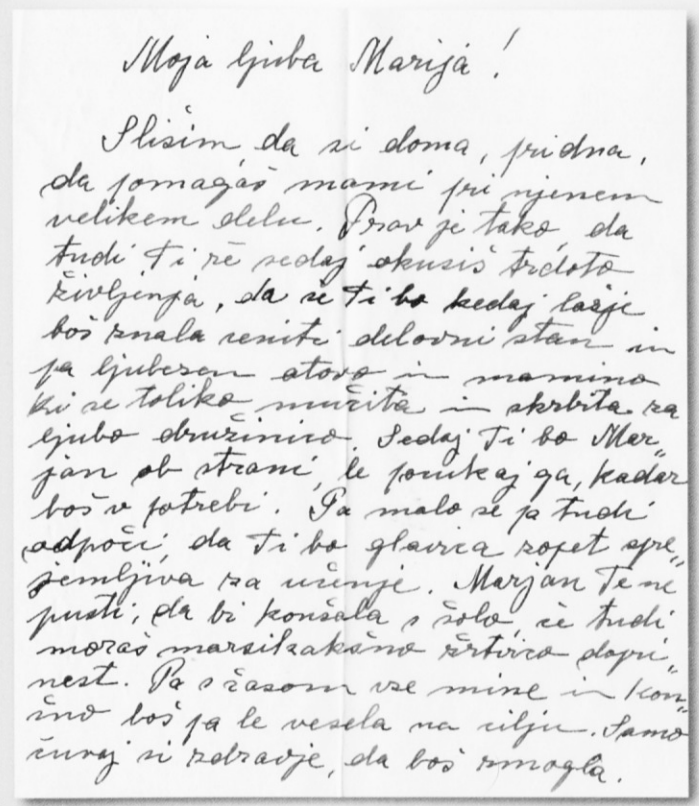 Moja ljuba Marija!
Slišim da si doma, pridna,
da pomagaš mami pri njenem
velikem delu. Prav je tako, da
tudi Ti že sedaj okusiš trdoto
življenja, da če Ti bo kedaj lažje
boš znala ceniti delovni stan in
pa ljubezen atovo in mamino
ki se toliko mučita in skrbita za
ljubo družinico. Sedaj Ti bo Mar„
jan ob strani, le pocukaj ga, kadar
boš v potrebi. Pa malo se pa tudi
odpoči, da Ti bo glavica zopet spre„
jemljiva za učenje. Marjan Te ne
pusti, da bi končala s šolo, če tudi
moraš marsikakšno žrtvico dopri„
nest. Pa s časom vse mine in kon„
čno boš pa le vesela na cilju. Samo
čuvaj si zdravje, da boš zmogla.